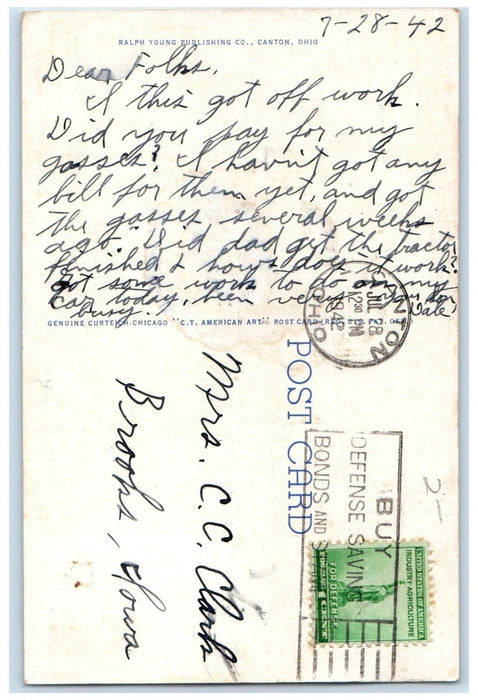 7-28-42
RALPH YOUNG PUBLISHING CO., CANTON, OHIO
Dear Folks,
I this got off work.
Did you pay for my
gasses? I havn't got any
bill for them yet, and got
the gasses several weeks
ago. Did dad get the tractor
finished & how does it work?
got some work to do on my
car today, been very
busy. Dale
GENUINE CURTEICH-CHICAGO "C.T. AMERICAN ART" POST CARD
CANTON
JUL 28
12 30 PM
1942
OHIO
POST CARD
Mrs. C. C. Clark
Brooks, Iowa
BUY
DEFENSE SAVINGS
BONDS AND
UNITED STATES OF AMERICA
INDUSTRY AGRICULTURE
FOR DEFENSE
2-